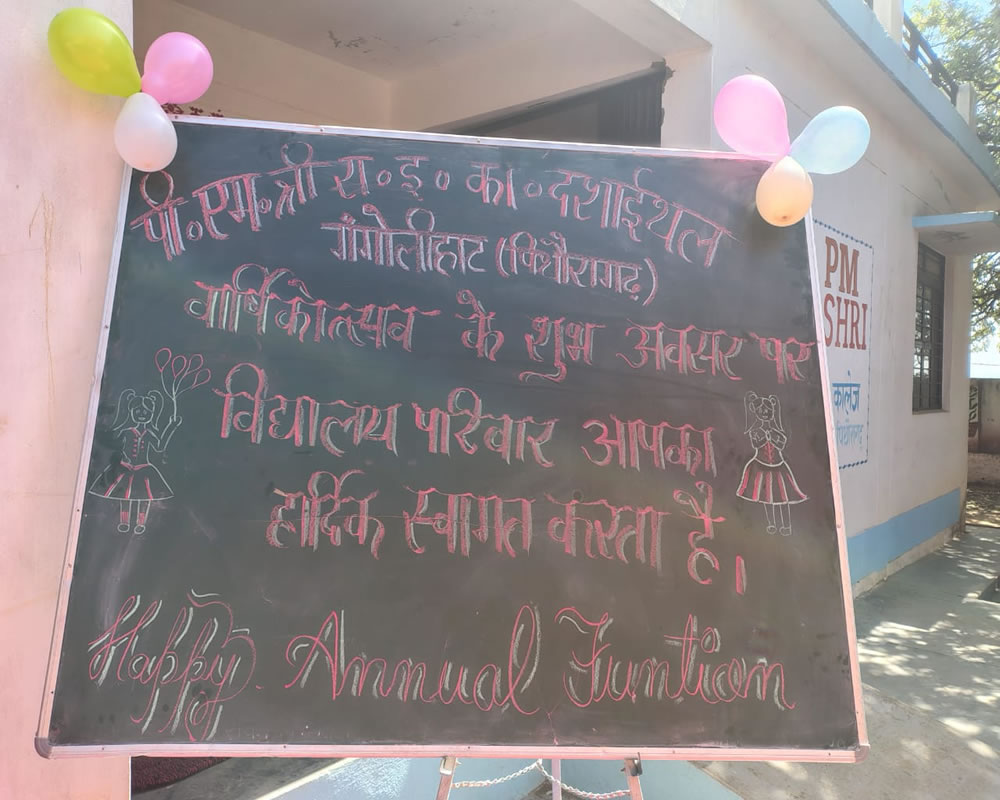 पी॰एम॰श्री रा॰इ॰ का॰दशाईथल
गंगोलीहाट (पिथौरागढ़)
वार्षिकोत्सव के शुभ अवसर पर
विद्यालय परिवार आपका
हार्दिक स्वागत करता है।
Happy Annual Funtion
PM
SHRI
कालेज